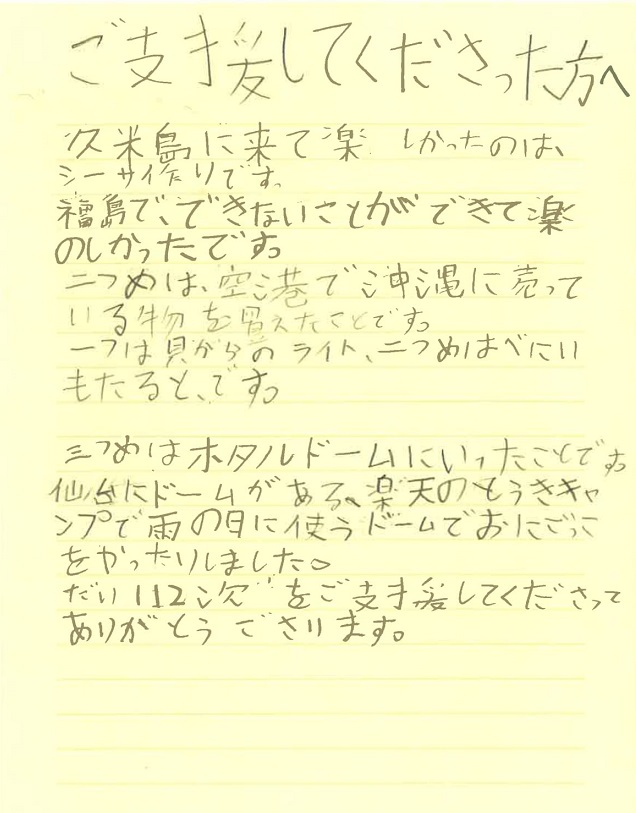 ご支援してくださった方へ
久米島に来て楽しかったのは、
シーサー作りです。
福島で、できないことができて楽
のしかったです。
二つめは、空港で沖縄に売って
いる物を買えたことです。
一つは貝がらのライト、二つめはべにい
もたると、です。
三つめはホタルドームにいったことです。
仙台にドームがある、楽天のとうきキャ
ンプで雨の日に使うドームでおにごっこ
をやったりしました。
だい112次をご支援してくださって
ありがとうございます。